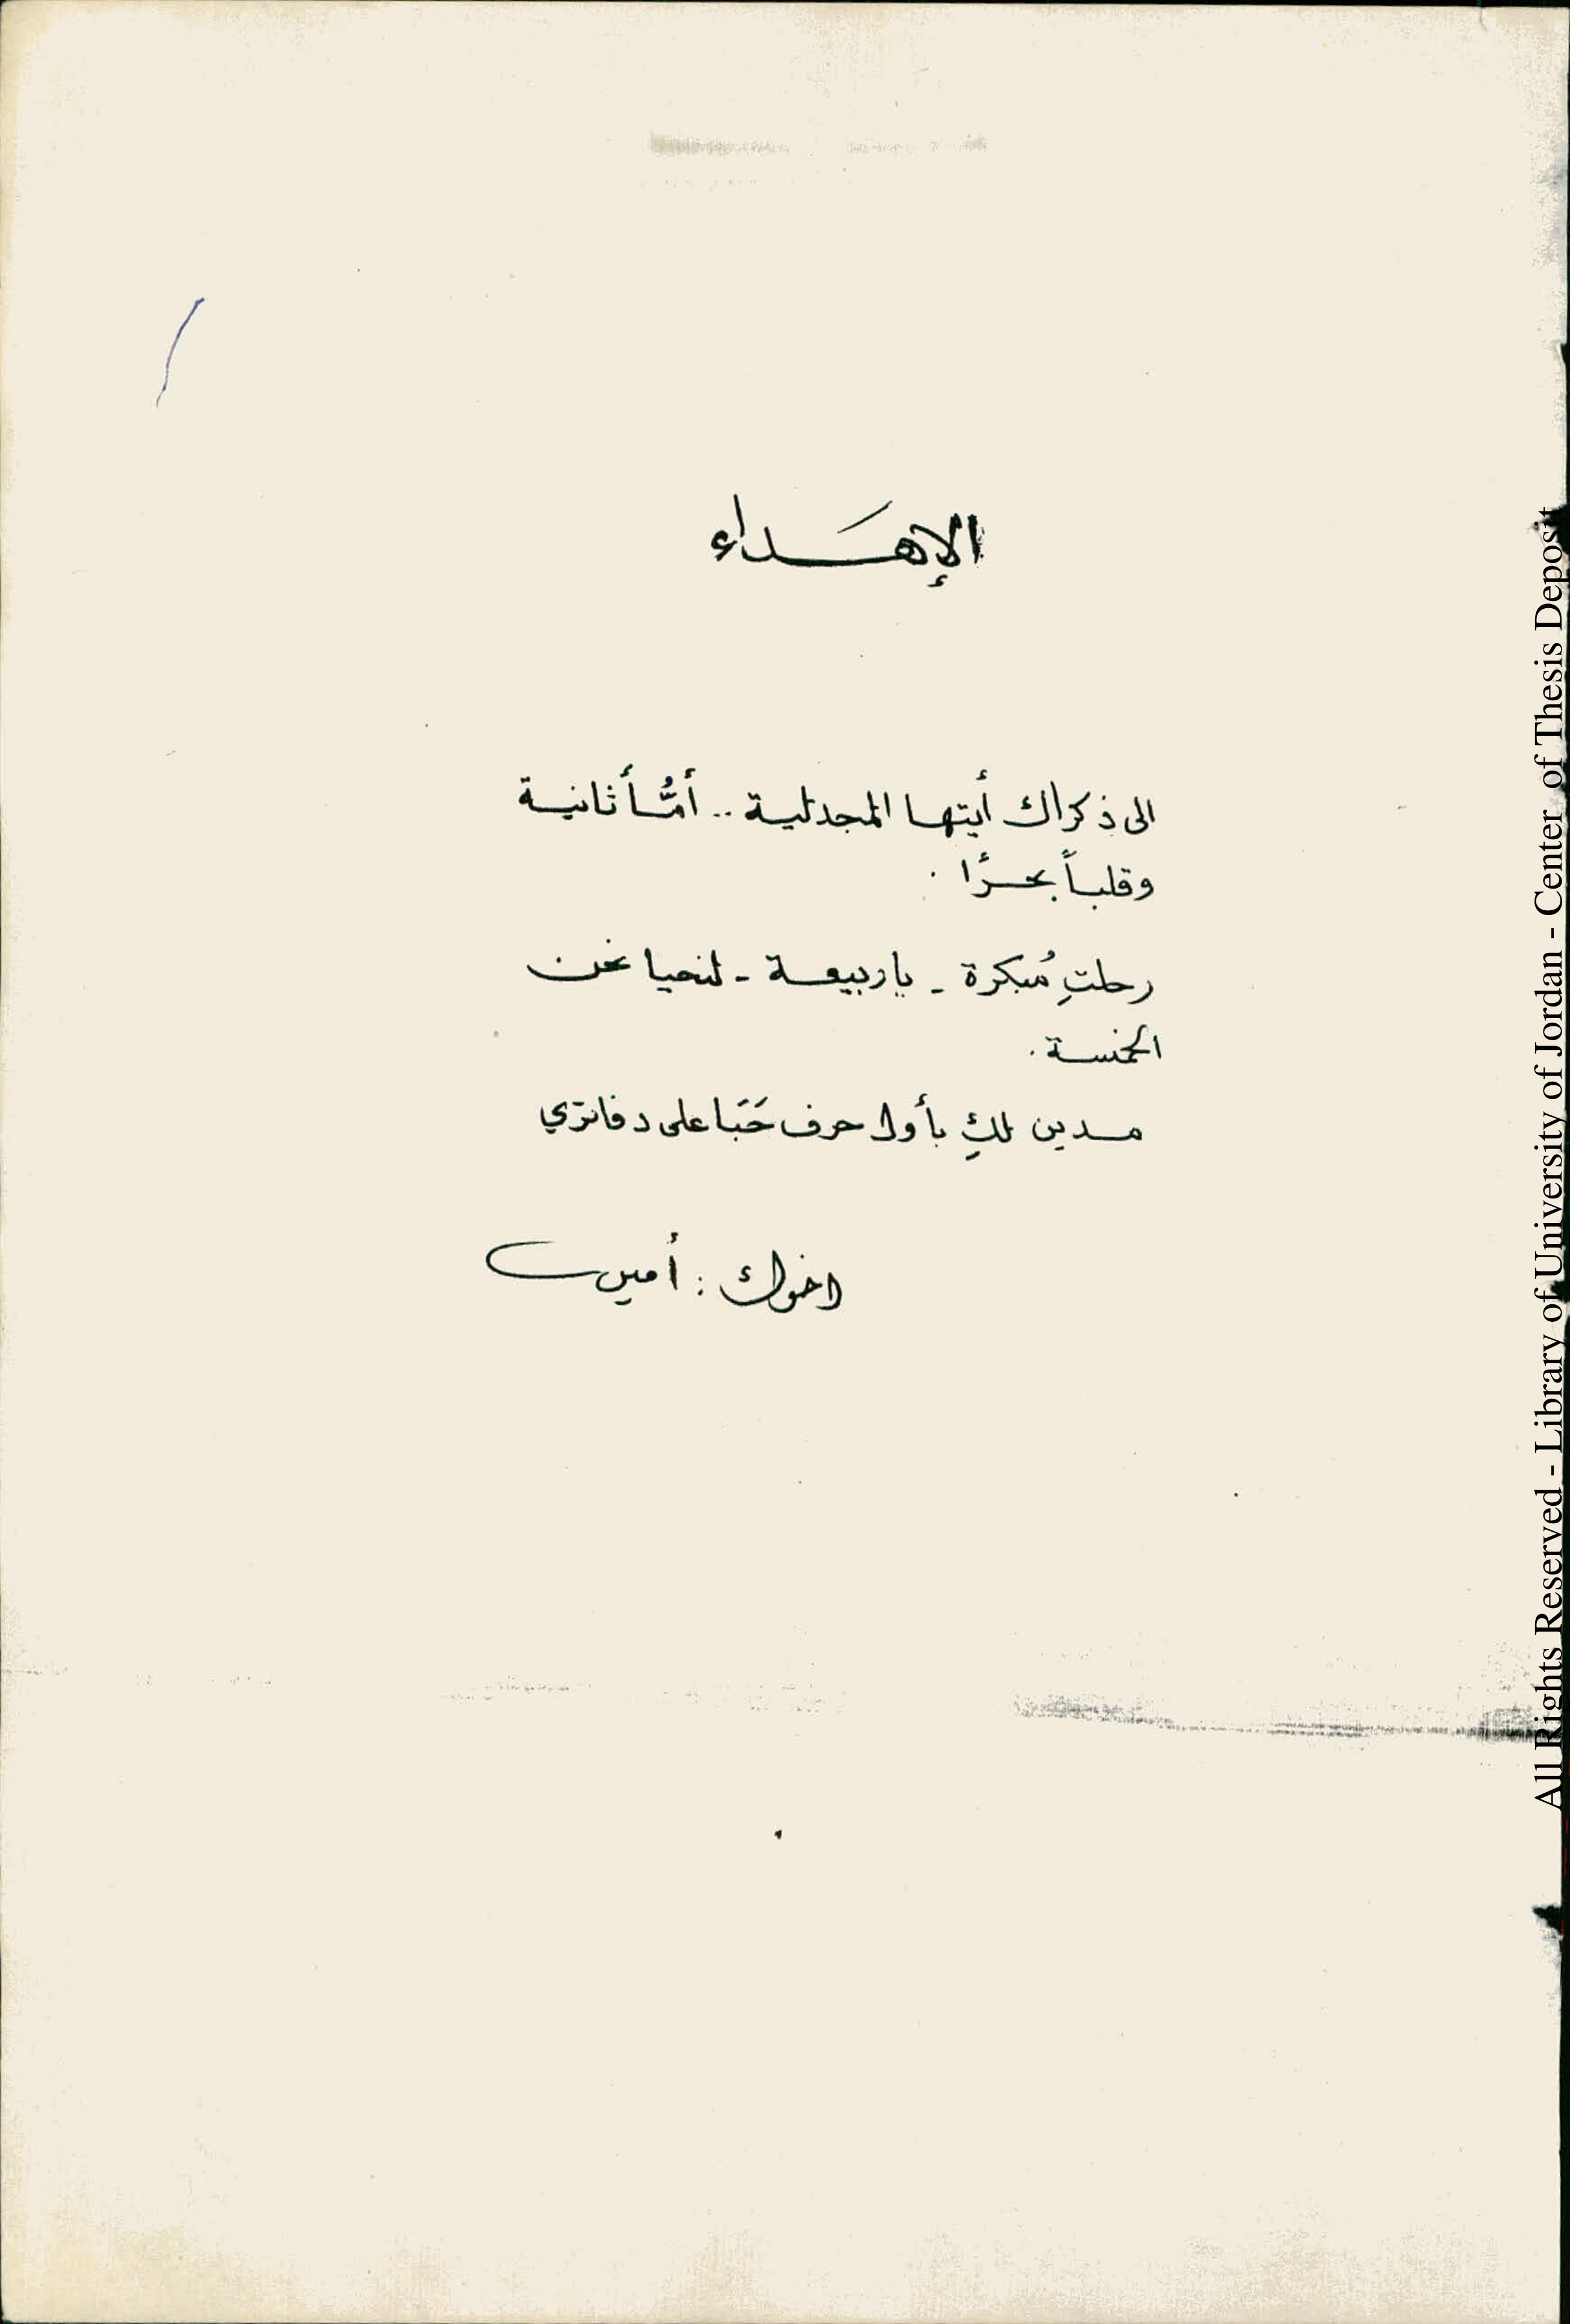 الإهَداء
الى ذكراك أيتها المجدلية .. أمُّاً ثانية
وقلباً بحرًا .
رحلتِ مُبكرة - يا ربيعة - لنحيا نحن
الخمسة .
مدين لكِ بأول حرف حَبَا على دفاتري
اخوك : أمين
All Rights Reserved - Library of University of Jordan - Center of Thesis Deposit